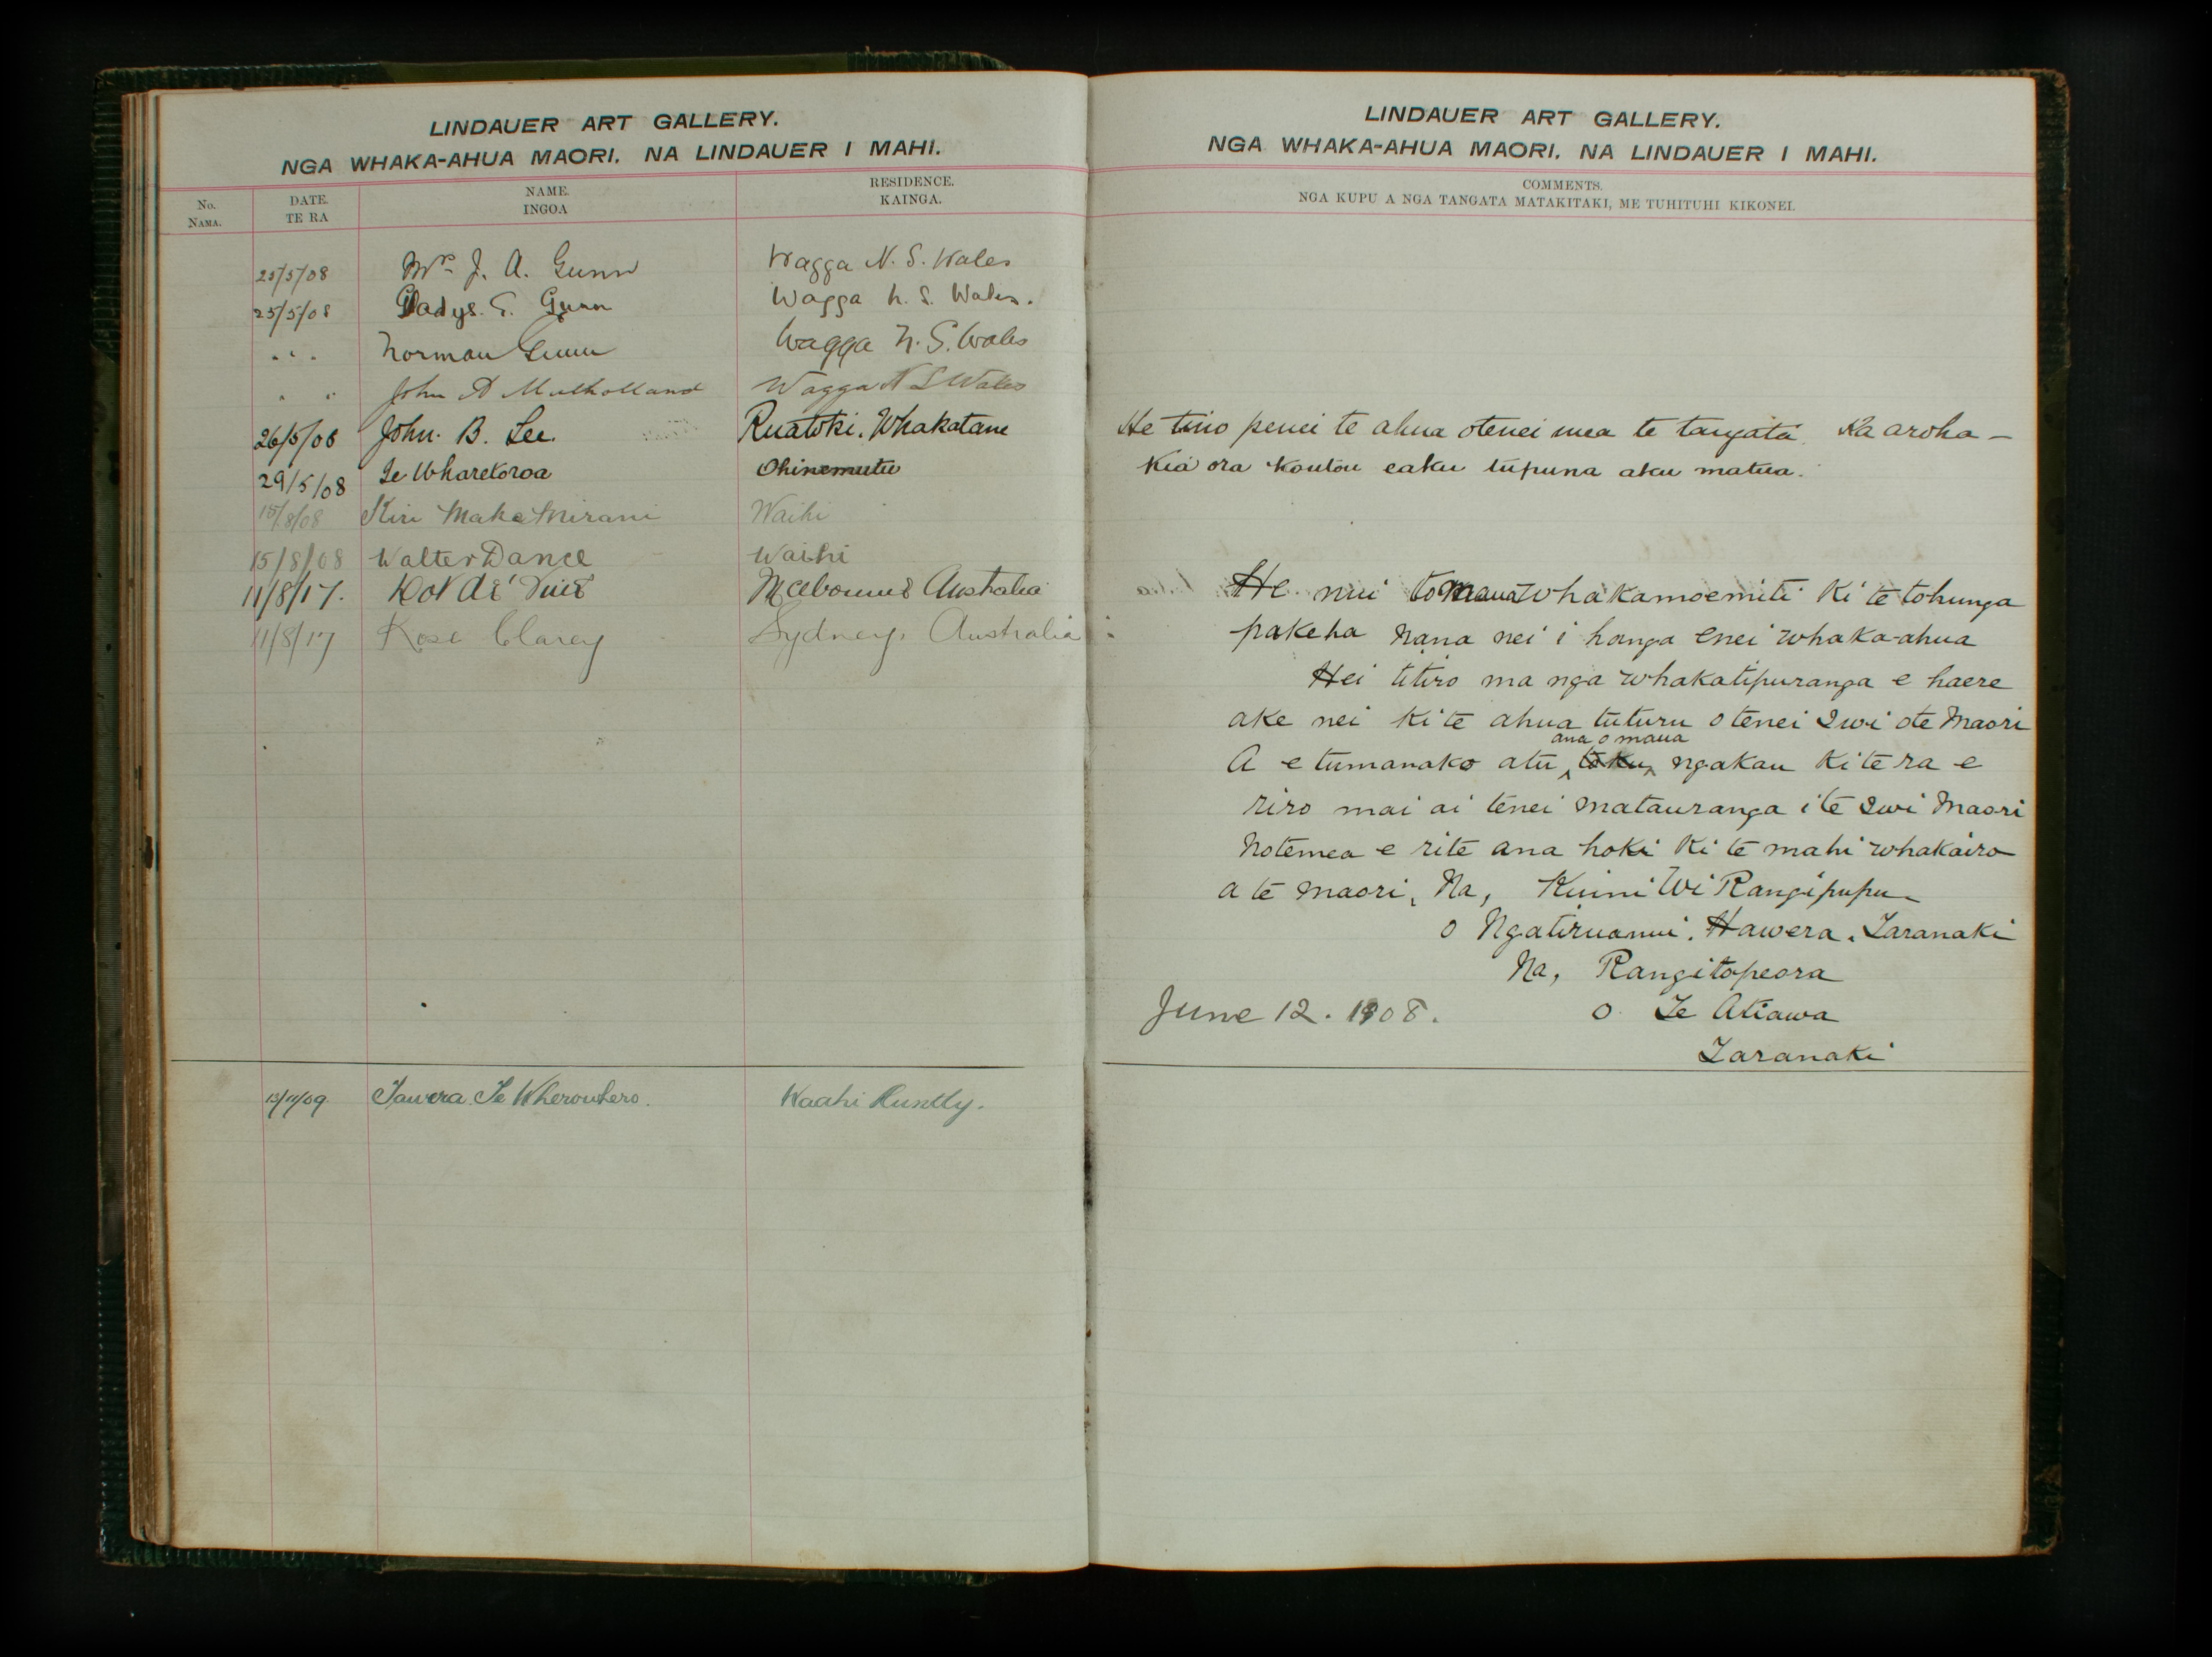 LINDAUER ART GALLERY.
NGA WHAKA-AHUA MAORI. NA LINDAUER I MAHI.
No. DATE. NAME. RESIDENCE.
NAMA. TE RA INGOA KAINGA.
25/5/08 Mrs J. A. Gunn Wagga N. S. Wales
25/5/08 Gladys. E. Gunn Wagga N. S. Wales.
" " Norman Gunn Wagga N. S. Wales
" " John A Mulholland Wagga N S Wales
26/5/08 John. B. Lee. Ruatoki. Whakatane
29/5/08 Te Wharekoroa Ohinemutu
15/8/08 Kiri Waihi
15/8/08 Walter Dance Waihi
11/8/17. Melbourne Australia
11/8/17 Rose Clarey Sydney, Australia
13/11/09. Tawera Te Wherowhero. Waahi Huntly.
LINDAUER ART GALLERY.
NGA WHAKA-AHUA MAORI. NA LINDAUER I MAHI.
COMMENTS.
NGA KUPU A NGA TANGATA MATAKITAKI, ME TUHITUHI KIKONEI.
He tino penei te ahua otenei mea te tangata. Ka aroha –
Kia ora koutou eaku tupuna aku matua.
He nui to maua whakamoemiti ki te tohunga
pakeha nana nei i hanga enei whaka-ahua
Hei titiro ma nga whakatipuranga e haere
ake nei ki te ahua tuturu o tenei Iwi ote Maori
ana o maua
A e tumanako atu toku ngakau ki te ra e
riro mai ai tenei matauranga i te Iwi Maori
Notemea e rite ana hoki ki te mahi whakairo
a te maori, Na, Kuini Wi Rangipupu
o Ngatiruanui. Hawera. Taranaki
Na, Rangitopeora
June 12. 1908. o Te Atiawa
Taranaki